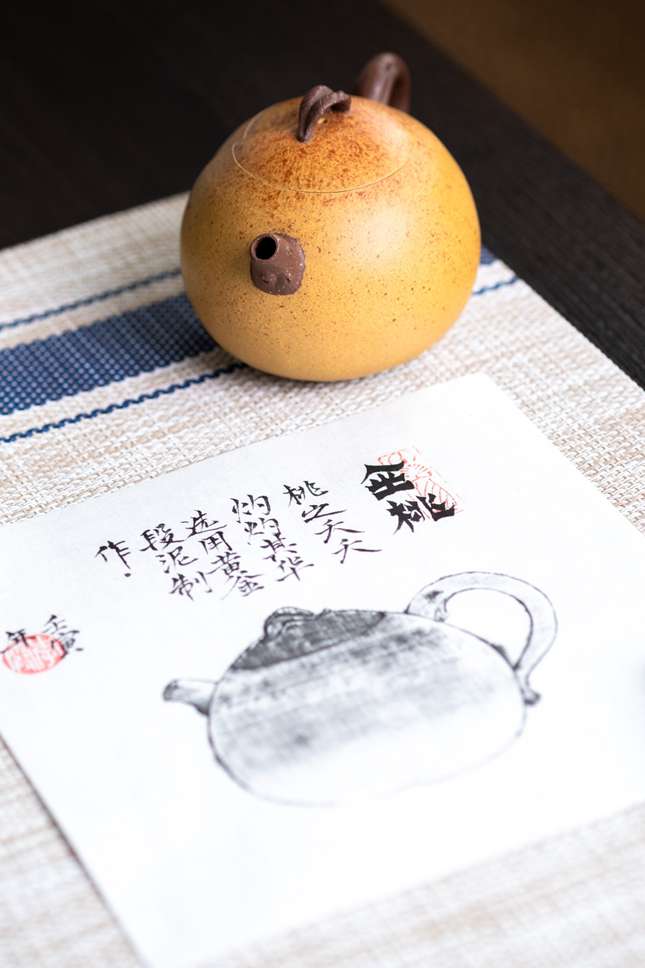 金桃
桃之夭夭
灼灼其华
选用黄金
段泥制
作.
壬寅
年